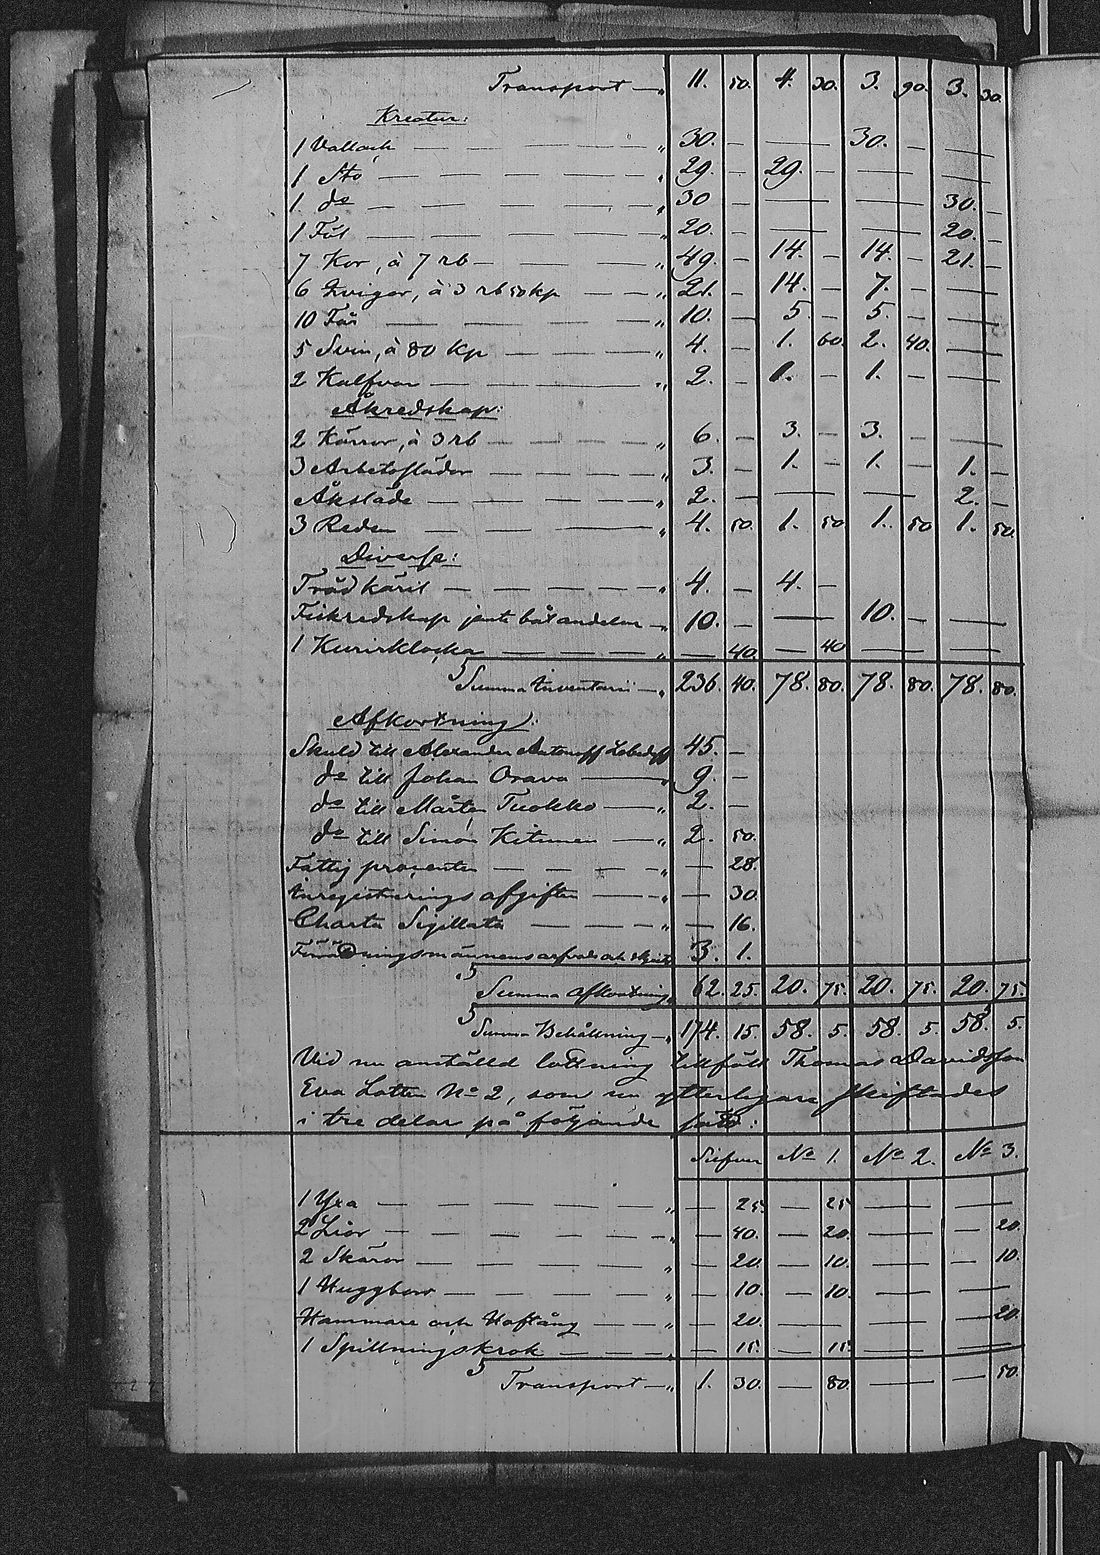 Transport — „ 11. 50. 4. 30. 3. 90. 3. 30.
Kreatur:
1 Vallack — — — — „ 30. — — — 30. — — —
1 Sto — — — — „ 29. — 29. — — — — —
1. do — — — — „ 30 — — — — — 30. —
1 Föl — — — — „ 20. — — — — — 20. —
7 Kor, à 7 rb — — — „ 49. — 14. — 14. — 21. —
6 Qvigor, à 3 rb 50 kp — — „ 21. — 14. — 7. — — —
10 Får — — — — „ 10. — 5. — 5. — — —
5 Svin, à 80 kp — — — „ 4. — 1. 60. 2. 40. — —
2 Kalfvar — — — — „ 2. — 1. — 1. — — —
Åkredskap:
2 Kärror, à 3 rb — — — „ 6. — 3. — 3. — — —
3 Arbetsslädor — — — „ 3. — 1. — 1. — 1. —
Åksläde — — — — „ 2. — — — — — 2. —
3 Reden — — — „ 4. 50. 1. 50 1. 50 1. 50.
Diverse:
Trädkäril — — — — „ 4. — 4. —
Fiskredskap jemte båtandelar — „ 10. — — — 10. — —
1 Kurirklocka — — — „ — 40. — 40 — — — —
Summa Inventarii — „ 236. 40. 78. 80. 78. 80. 78. 80.
Afkortning:
Skuld till Alexander Antonoff Lebedeff 45. —
do till Johan Orava — „ 9. —
do till Mårten Tuokko — „ 2. —
do till Simon Kitunen — „ 2. 50.
Fattig procenten — — — — „ — 28.
Inregistrerings afgiften — — „ — 30.
Charta Sigillata — — — „ — 16.
Förrättningsmännens arfvode och 3. 1.
Summa afkortning 62. 25. 20. 75. 20. 75. 20. 75.
Summa Behållning — „ 174. 15. 58. 5. 58. 5. 58. 5.
Vid nu anställd lottning tillföll Thomas Davidsson
Eva Lotten No 2, som nu ytterligare skiftades
i tre delar på följande sätt:
Silfver No 1. No 2. No 3.
1 Yxa — — — — „ — 25. — 25 — — — —
2 Liar — — — — „ — 40. — 20. — — — 20.
2 Skäror — — — — „ — 20. — 10. — — — 10.
1 Huggborr — — — — „ — 10. — 10. — — — —
Hammare och Hoftång — — „ — 20. — — — — — 20.
1 Spillningskrok — — — „ — 15. — 15 — — — —
Transport — „ 1. 30. — 80. — — — 50.